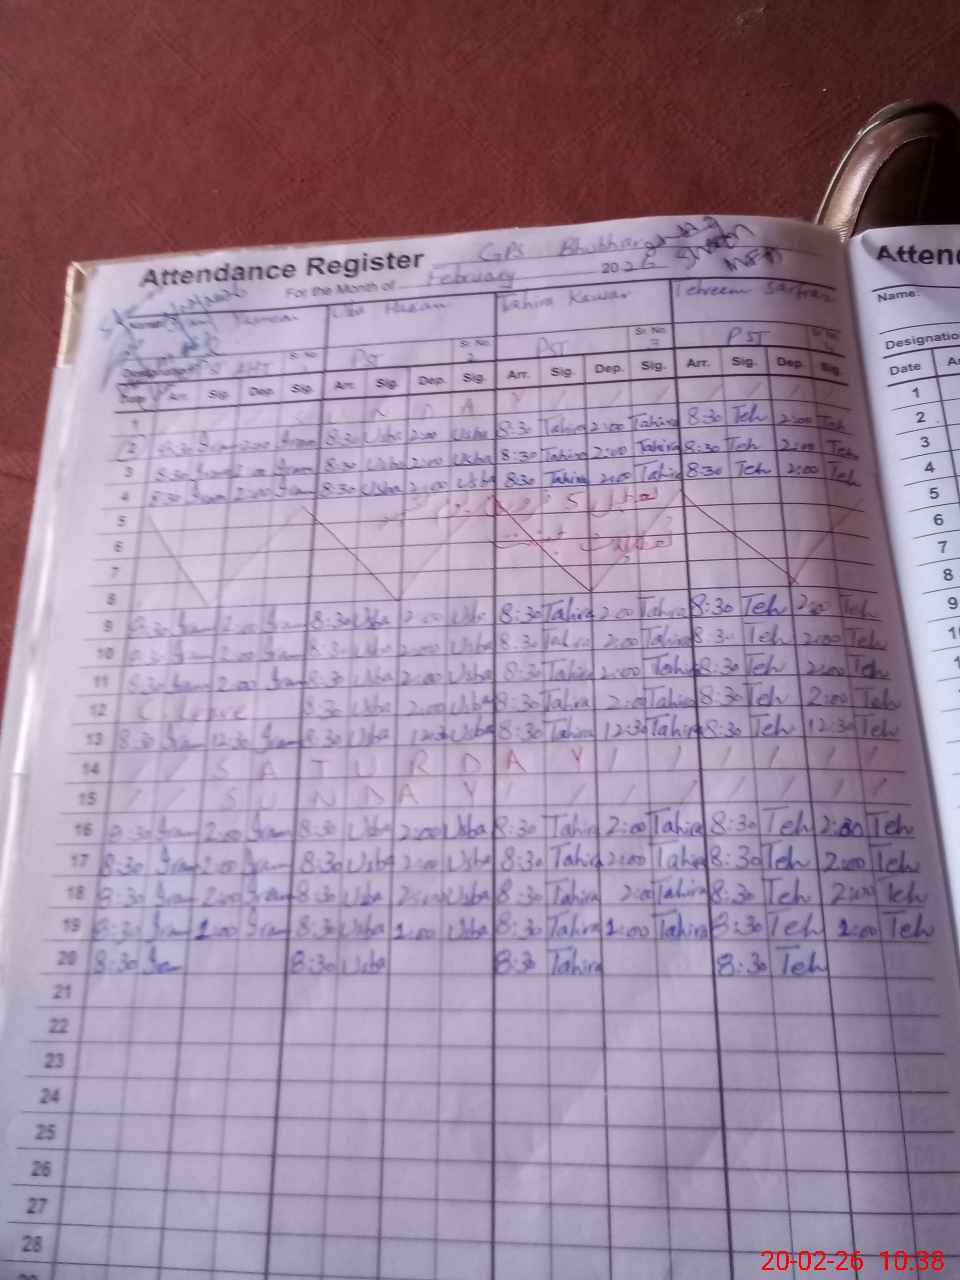 Attendance Register GPS
For the Month of February 202
Usba Hasan Tahira Kawar Tehreem
Designation Sr. No. PST Sr. No. 2 PST Sr. No. PST
Date Arr. Sig. Dep. Sig. Arr. Sig. Dep. Sig. Arr. Sig. Dep. Sig. Arr. Sig. Dep. Sig.
1 S U N D A Y
2 8:30 Iram 2:00 Iram 8:30 Usba 2:00 Usba 8:30 Tahira 2:00 Tahira 8:30 Teh 2:00 Teh
3 8:30 Iram 2:00 Iram 8:30 Usba 2:00 Usba 8:30 Tahira 2:00 Tahira 8:30 Teh 2:00 Teh
4 8:30 Iram 2:00 Iram 8:30 Usba 2:00 Usba 8:30 Tahira 2:00 Tahira 8:30 Teh 2:00 Teh
5
6
7
8
9 8:30 Iram 2:00 Iram 8:30 Usba 2:00 Usba 8:30 Tahira 2:00 Tahira 8:30 Teh 2:00 Teh
10 8:30 Iram 2:00 Iram 8:30 Usba 2:00 Usba 8:30 Tahira 2:00 Tahira 8:30 Teh 2:00 Teh
11 8:30 Iram 2:00 Iram 8:30 Usba 2:00 Usba 8:30 Tahira 2:00 Tahira 8:30 Teh 2:00 Teh
12 C leave 8:30 Usba 2:00 Usba 8:30 Tahira 2:00 Tahira 8:30 Teh 2:00 Teh
13 8:30 Iram 12:30 Iram 8:30 Usba 12:30 Usba 8:30 Tahira 12:30 Tahira 8:30 Teh 12:30 Teh
14 / / S A T U R D A Y / / / / / /
15 / / S U N D A Y / / / / / / / /
16 8:30 Iram 2:00 Iram 8:30 Usba 2:00 Usba 8:30 Tahira 2:00 Tahira 8:30 Teh 2:00 Teh
17 8:30 Iram 2:00 Iram 8:30 Usba 2:00 Usba 8:30 Tahira 2:00 Tahira 8:30 Teh 2:00 Teh
18 8:30 Iram 2:00 Iram 8:30 Usba 2:00 Usba 8:30 Tahira 2:00 Tahira 8:30 Teh 2:00 Teh
19 8:30 Iram 1:00 Iram 8:30 Usba 1:00 Usba 8:30 Tahira 1:00 Tahira 8:30 Teh 1:00 Teh
20 8:30 Iram 8:30 Usba 8:30 Tahira 8:30 Teh
21
22
23
24
25
26
27
28
Name:
Date
1
2
3
4
5
6
7
8
9
20-02-26 10:38